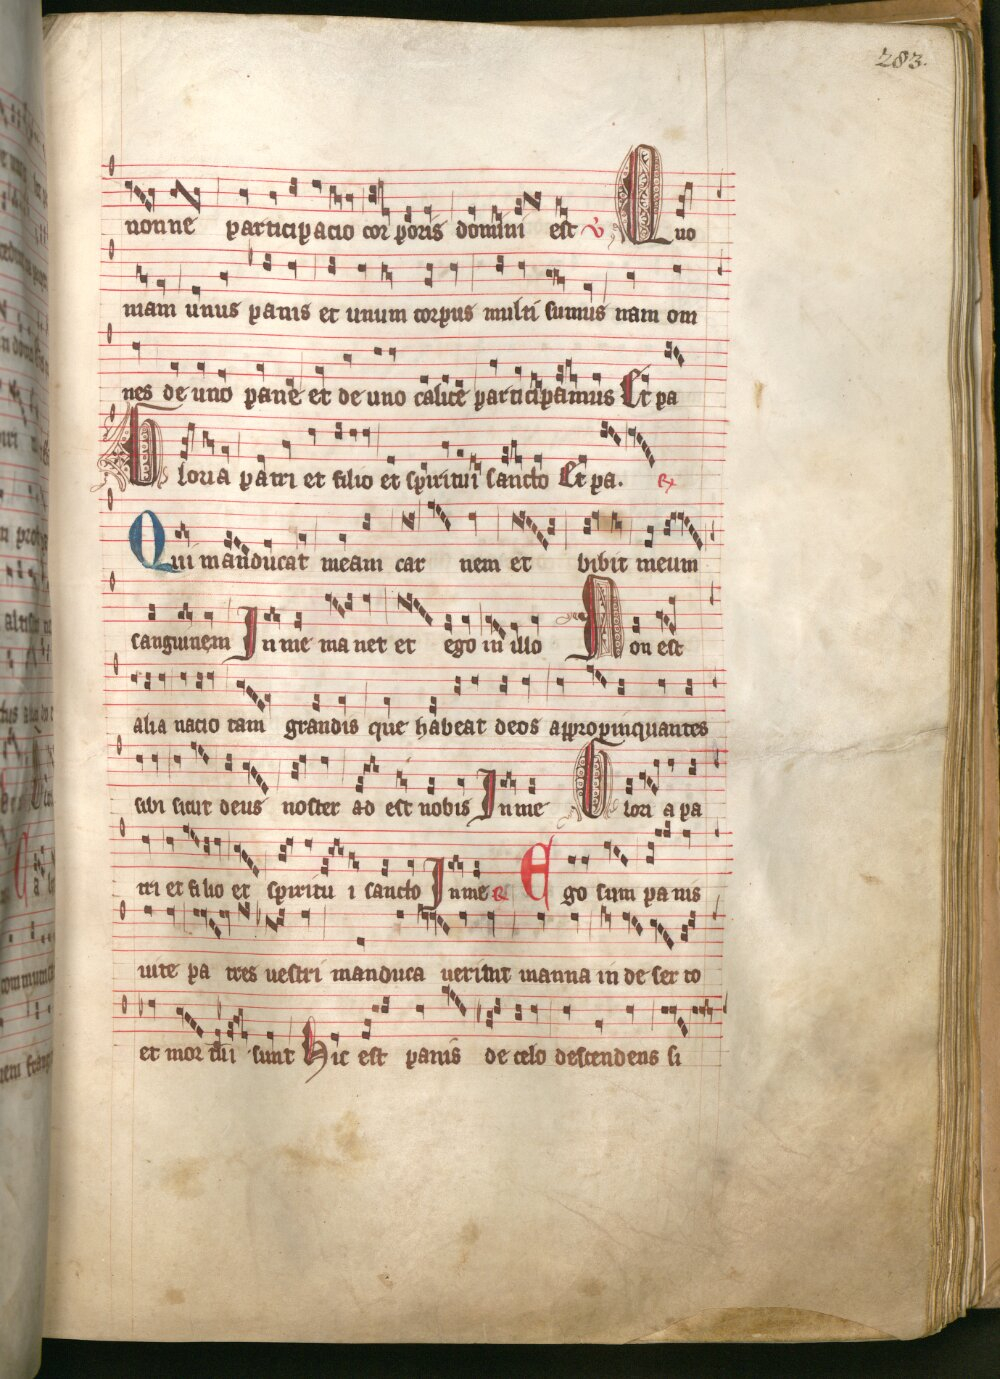 283.
nonne participacio corporis domini est v Quo
niam unus panis et unum corpus multi sumus nam om
nes de uno pane et de uno calice participamus Et pa
Gloria patri et filio et spiritui sancto Et pa. R
Qui manducat meam carnem et bibit meum
sanguinem In me manet et ego in illo Non est
alia nacio tam grandis que habeat deos appropinquantes
sibi sicut deus noster adest nobis In me Gloria pa
tri et filio et spiritui sancto In me R Ego sum panis
vite patres vestri manducaverunt manna in deserto
et mortui sunt Hic est panis de celo descendens si